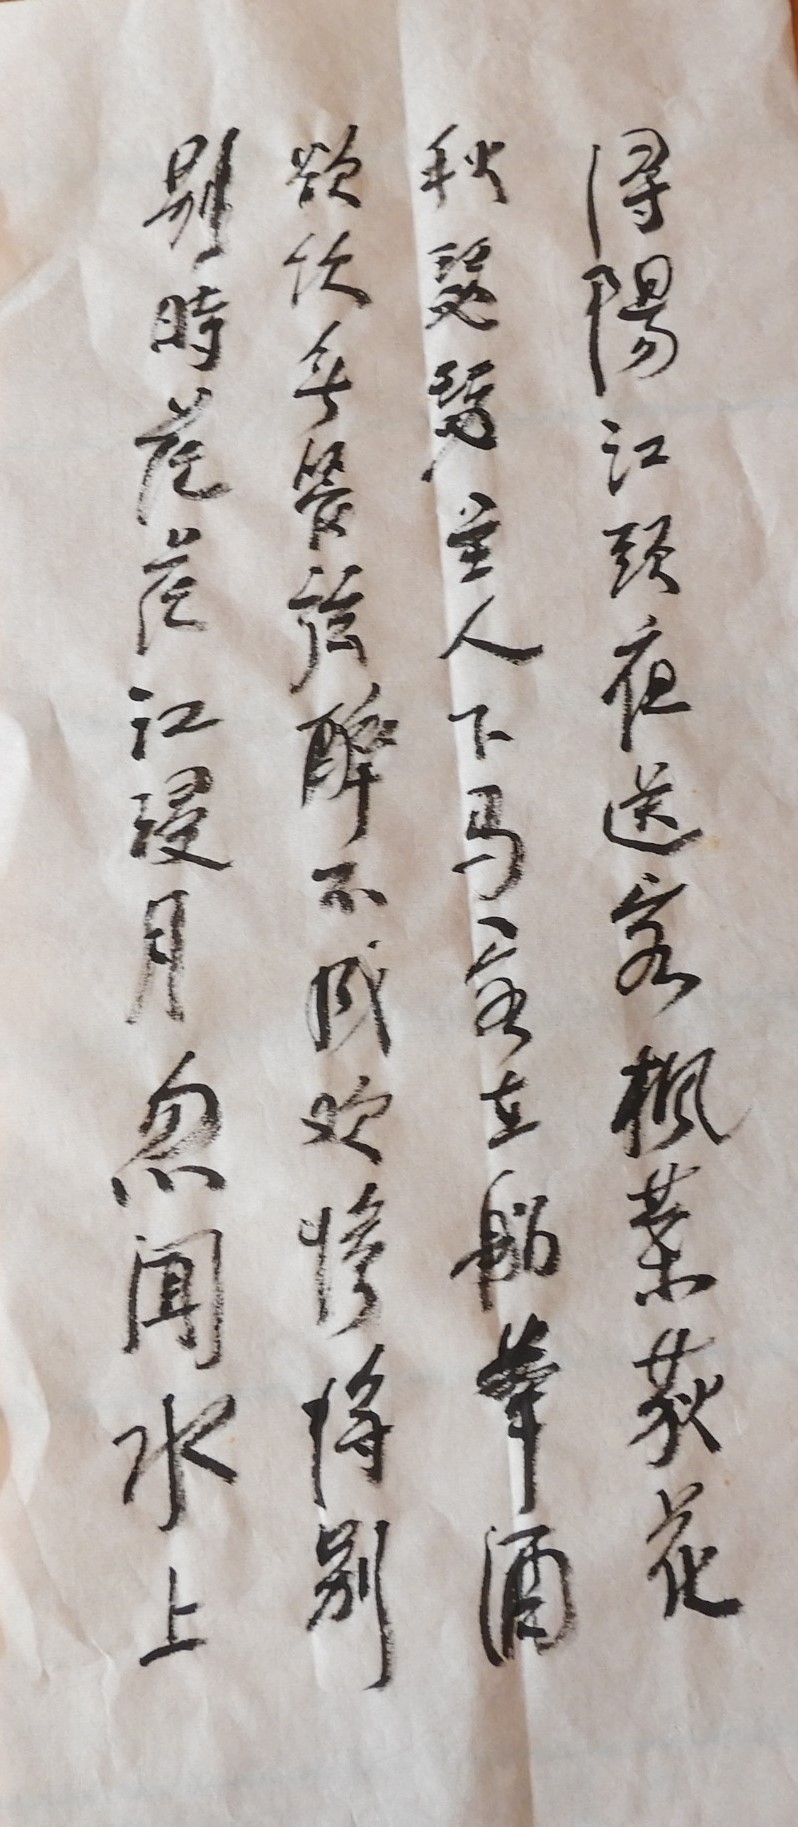 潯陽江頭夜送客楓葉荻花
秋瑟瑟主人下馬客在船舉酒
欲飲無管弦醉不成欢慘將别
别時茫茫江浸月忽聞水上